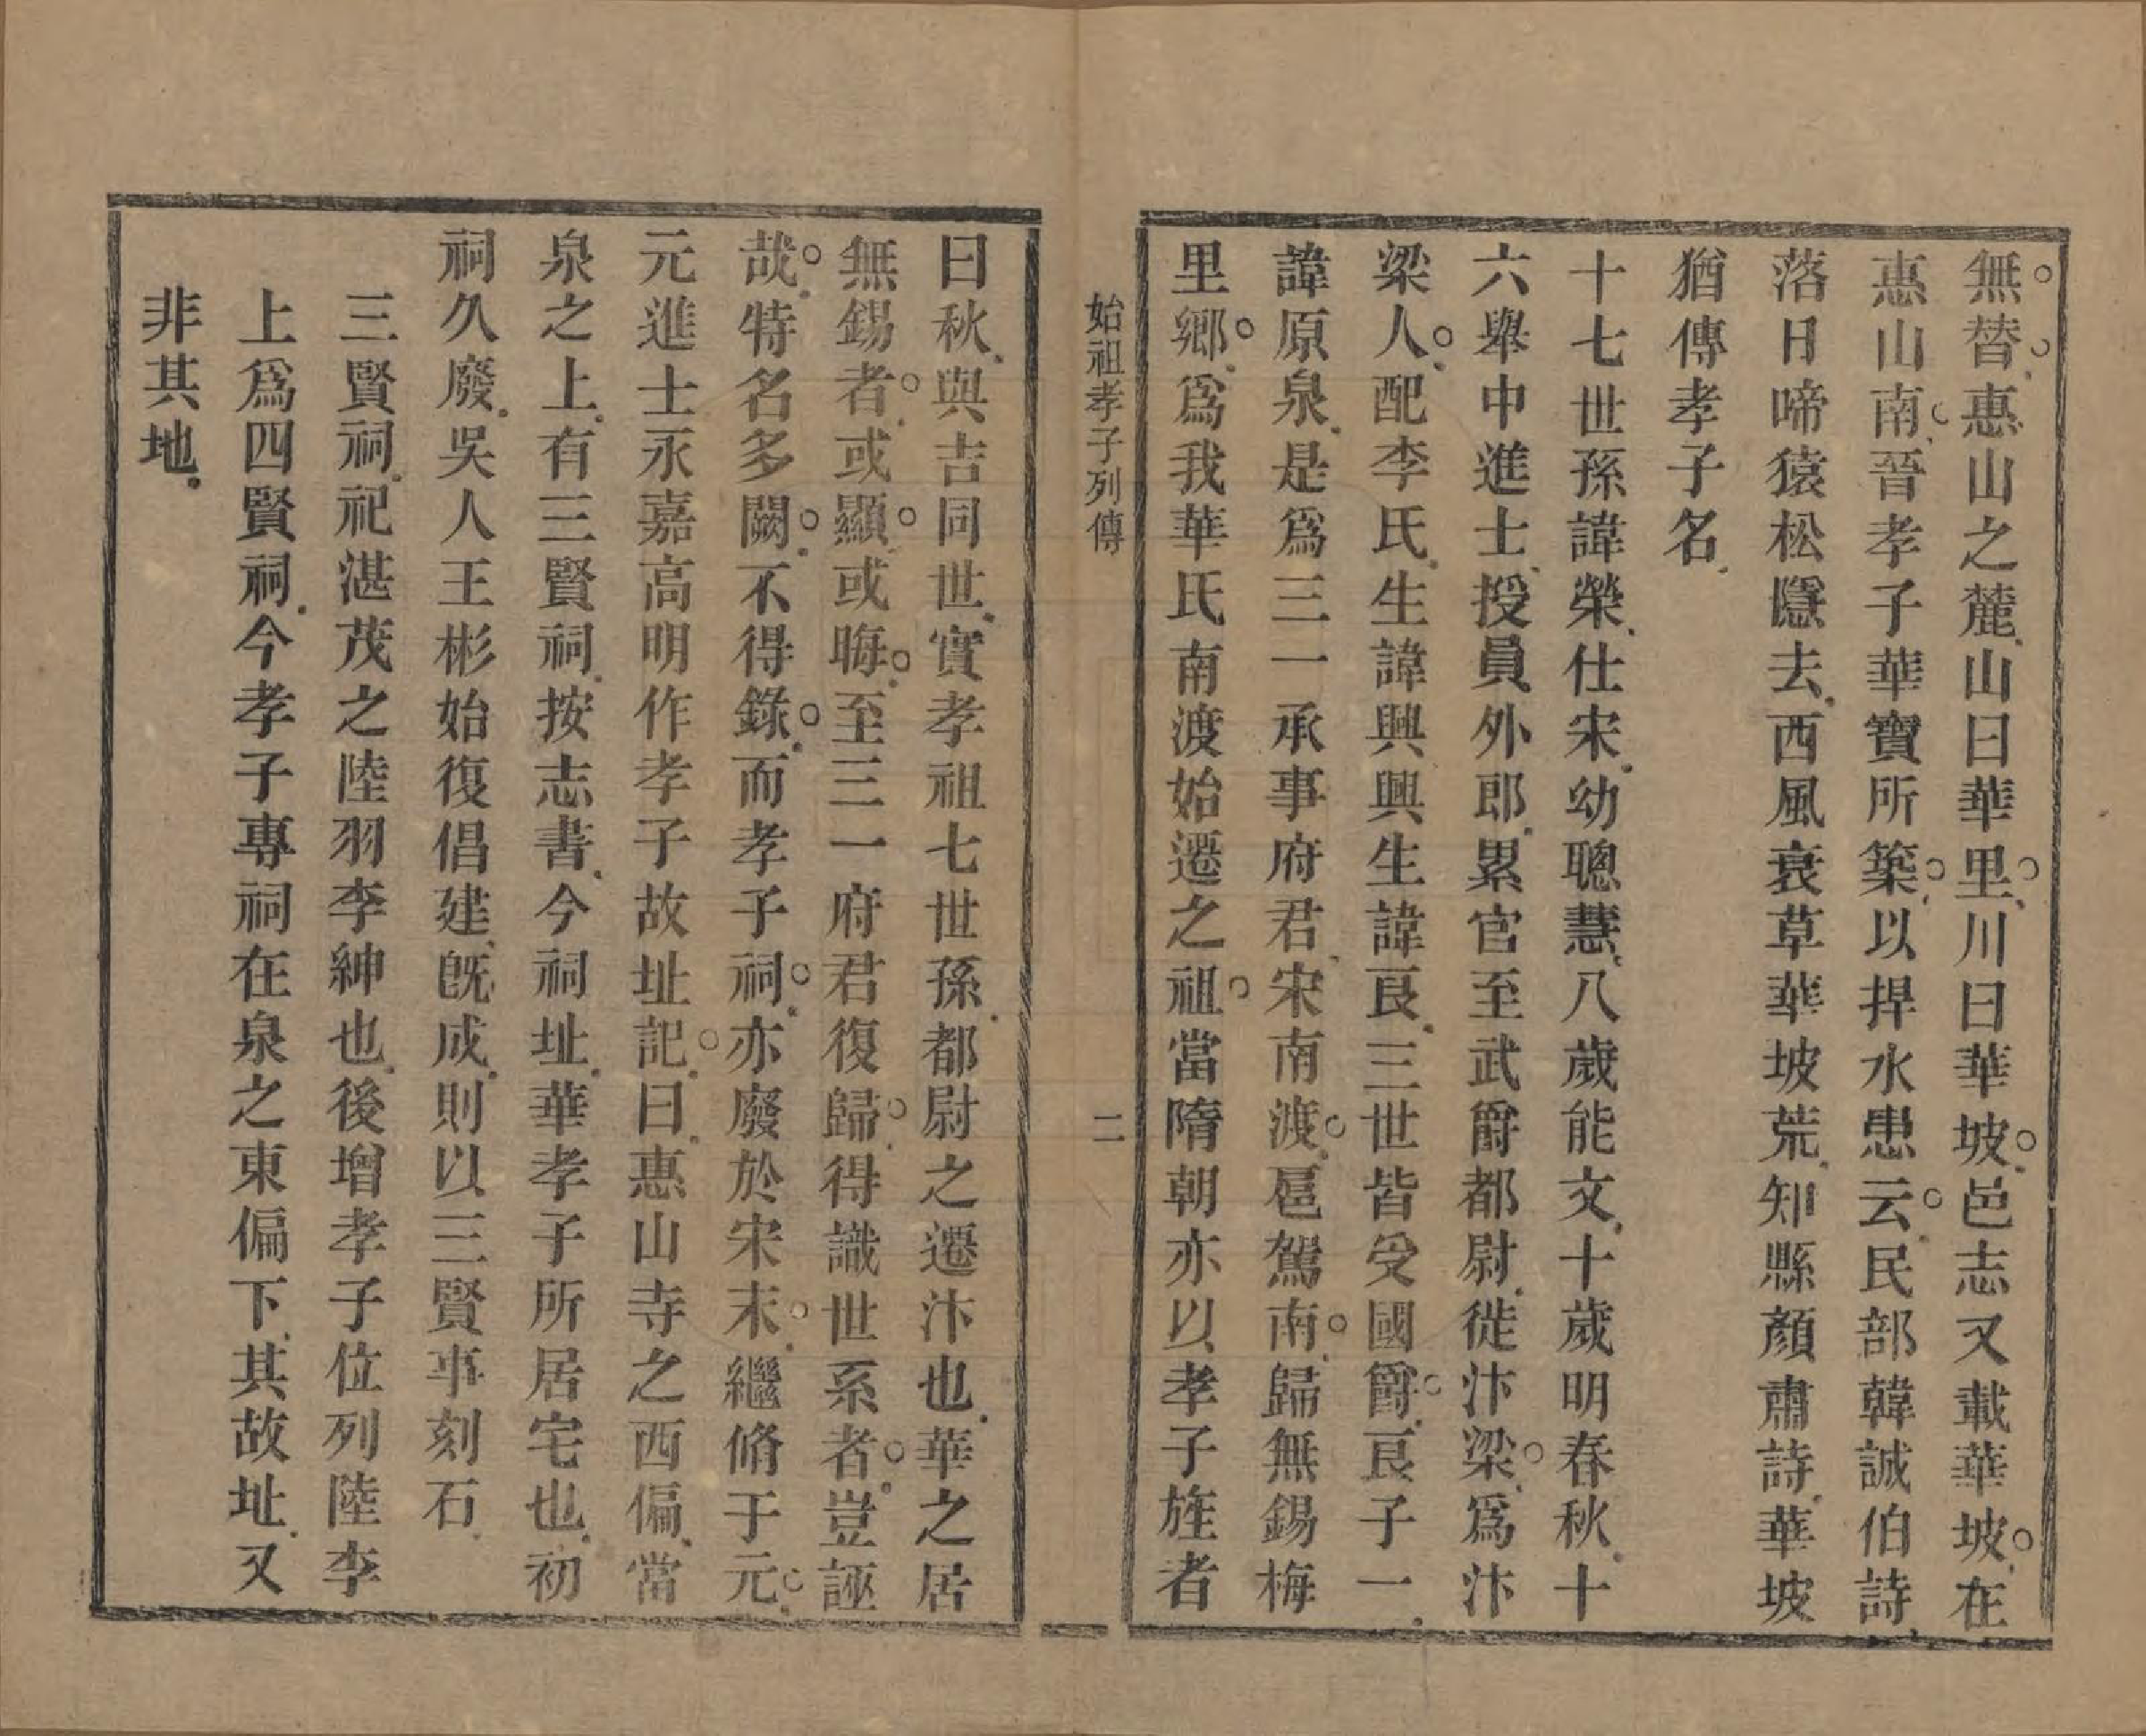 無替惠山之麓山曰華里川曰華坡邑志又載華坡在
惠山南晉孝子華寶所築以捍水患云民部韓誠伯詩
落日啼猿松隱去西風衰草華坡荒知縣顏肅詩華坡
猶傳孝子名
十七世孫諱榮仕宋幼聰慧八歲能文十歲明春秋十
六舉中進士授員外郎累官至武爵都尉徙汴梁爲汴
梁人配李氏生諱興興生諱良三世皆受國爵良子一
諱原泉是爲三一承事府君宋南渡扈駕南歸無錫梅
里鄉爲我華氏南渡始遷之祖當隋朝亦以孝子旌者
始祖孝子列傳 二
曰秋與吉同世實孝祖七世孫都尉之遷汴也華之居
無錫者或顯或晦至三一府君復歸得識世系者豈誣
哉特名多闕不得錄而孝子祠亦廢於宋末繼脩于元
元進士永嘉高明作孝子故址記曰惠山寺之西偏當
泉之上有三賢祠按志書今祠址華孝子所居宅也初
祠久廢吳人王彬始復倡建旣成則以三賢事刻石
三賢祠祀湛茂之陸羽李紳也後增孝子位列陸李
上爲四賢祠今孝子專祠在泉之東偏下其故址又
非其地